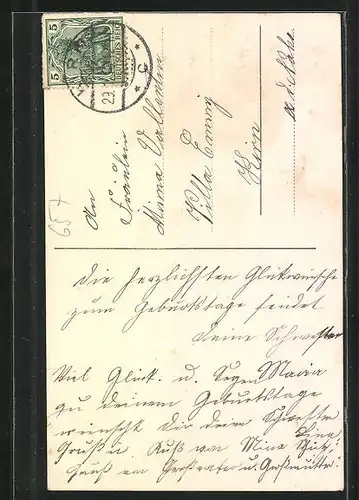 5 5
DEUTSCHES REICH
* C *
657
An
Fräulein
Mina Vollmer
Villa Emmy
Kirn
a. d. Nahe
Die herzlichsten Glückwünsche
zum Geburtstage sendet
deine Schwester
Maria
Viel Glück. u. Segen
zu deinem Geburtstage
wünscht Dir deine Schwester
Lina
Gruß u. Kuß von Mina
Gruß von Großvater u. Großmutter!